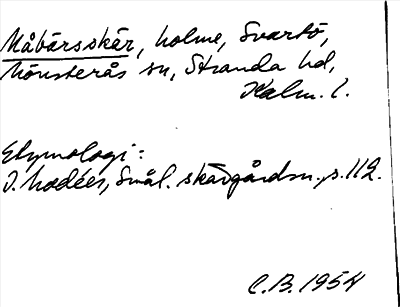 Måbärsskär, holme, Svartö,
Mönsterås sn, Stranda hd,
Kalm. l.
Etymologi:
I. Modéer, Smål. skärgårdsn. s. 112.
C.B. 1954